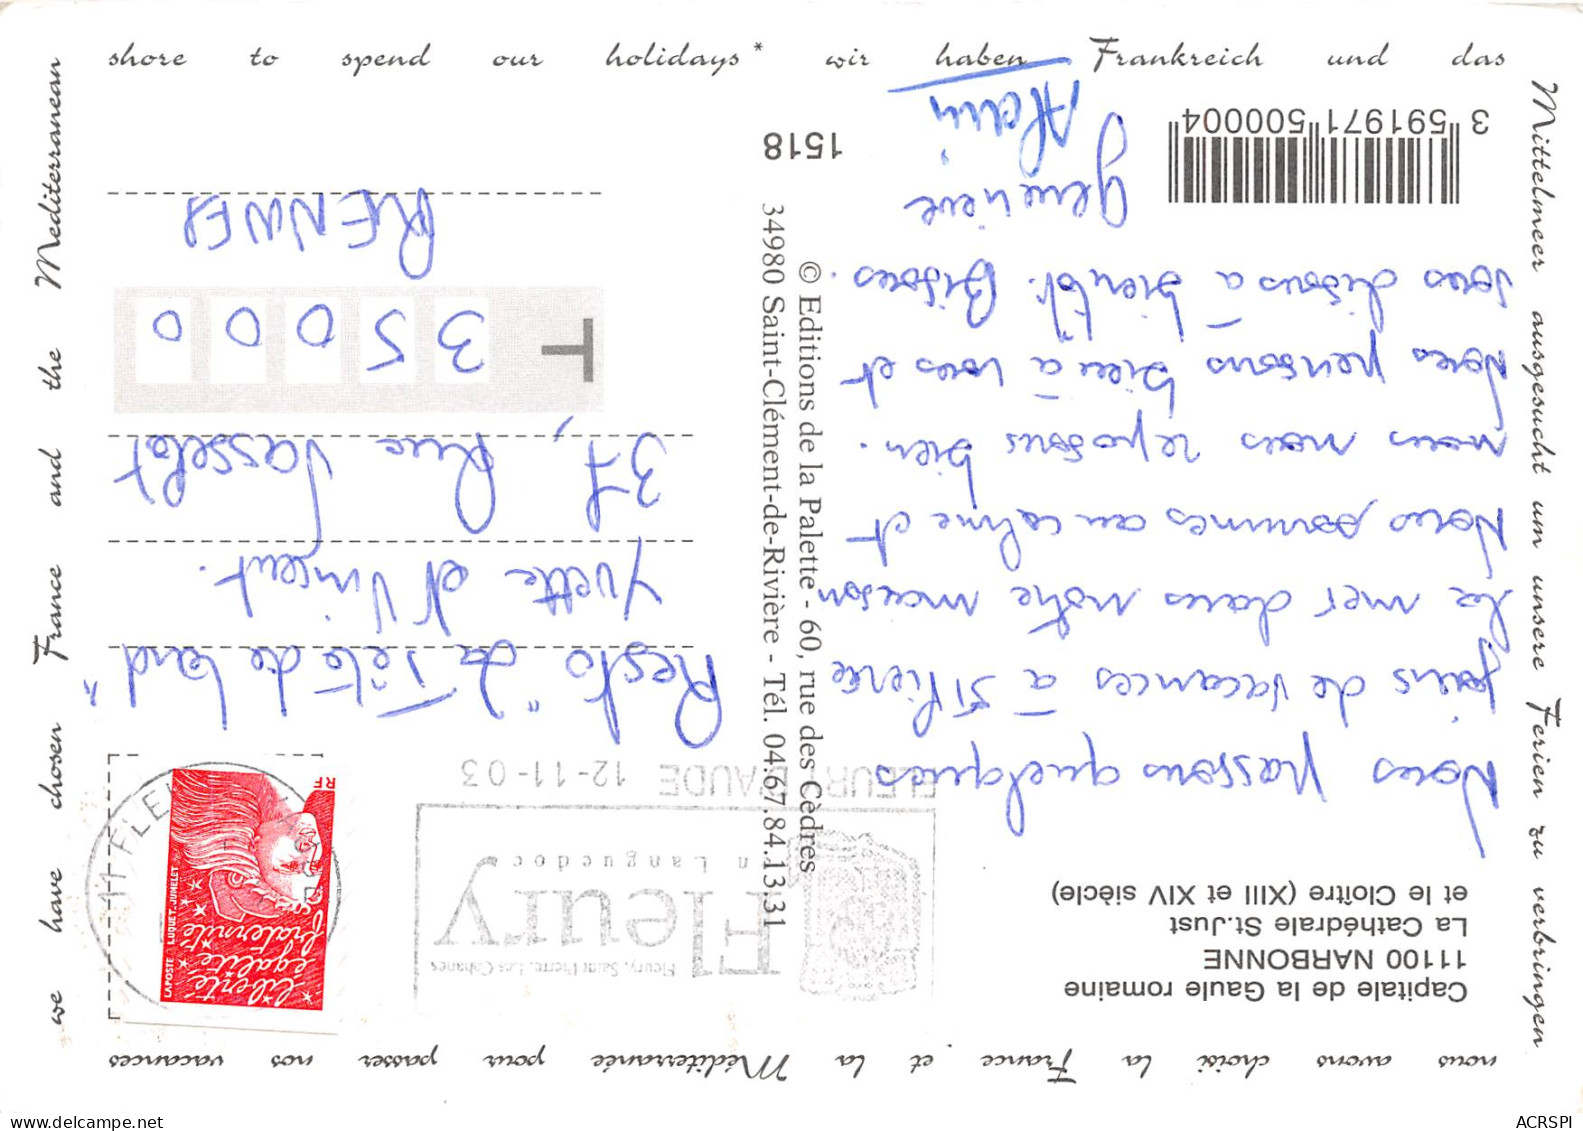 nous avons choisi la France et la Méditerranée pour passer nos vacances
we have chosen France and the Mediterranean
shore to spend our holidays * wir haben Frankreich und das
Mittelmeer ausgesucht um unsere Ferien zu verbringen
Capitale de la Gaule romaine
11100 NARBONNE
La Cathédrale St.Just
et le Cloître (XIII et XIV siècle)
Nous passons quelques
jours de vacances à St Pierre
la mer dans notre maison
Nous sommes au calme et
nous nous reposons bien.
Nous pensons bien à vous et
vous disons à bientôt. Bisous.
Geneviève
Alain
3 591971 500004
1518
© Editions de la Palette - 60, rue des Cèdres
34980 Saint-Clément-de-Rivière - Tél. 04.67.84.13.31
Fleury, Saint Pierre, Les Cabanes
Fleury
en Languedoc
FLEURY D'AUDE 12-11-03
11 FLEU
liberté
égalité
fraternité
LAPOSTE LUQUET, JUMELET
RF
Resto "La Tête de Lard"
Yvette et Vincent.
37, Rue Vasselot
T
35000
RENNES
ACRSPI